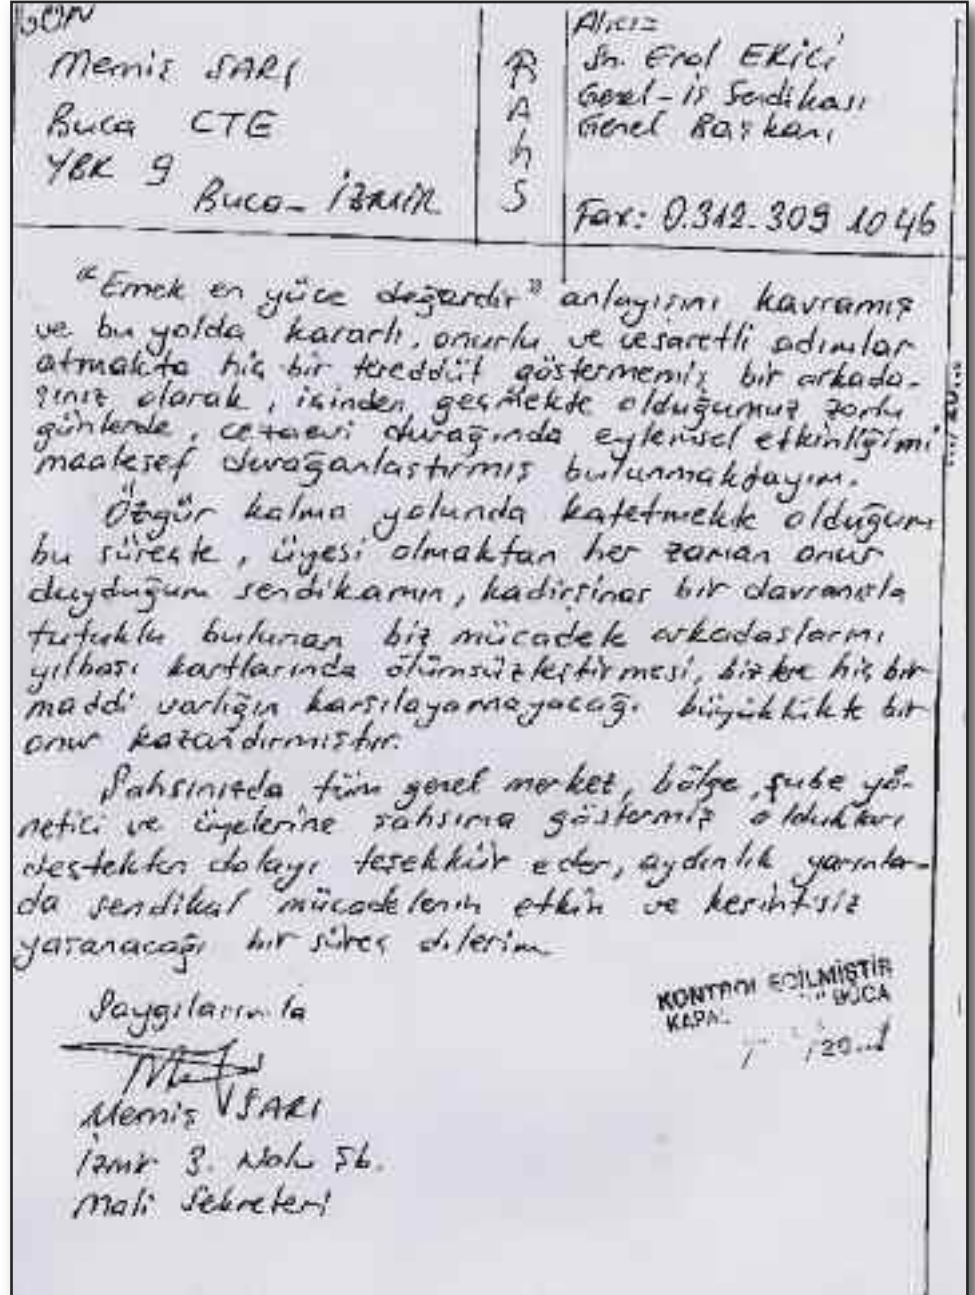 GÖN
Memiş SARI
Buca CTE
YBK 9
Buca - İZMİR
FAhS
Alıcı:
Sn. Erol EKİCİ
Genel-İş Sendikası
Genel Başkanı
Fax: 0.312.309 10 46
"Emek en yüce değerdir" anlayışını kavramış
ve bu yolda kararlı, onurlu ve cesaretli adımlar
atmakta hiç bir tereddüt göstermemiş bir arkada-
şınız olarak, içinden geçmekte olduğumuz zorlu
günlerde, cezaevi durağında eylemsel etkinliğimi
maalesef durağanlaştırmış bulunmaktayım.
Özgür kalma yolunda katetmekte olduğum
bu süreçte, üyesi olmaktan her zaman onur
duyduğum sendikamın, kadirşinas bir davranışla
tutuklu bulunan biz mücadele arkadaşlarını
yılbaşı kartlarında ölümsüzleştirmesi, bizlere hiç bir
maddi varlığın karşılayamayacağı büyüklükte bir
onur kazandırmıştır.
Şahsınızda tüm genel merkez, bölge, şube yö-
netici ve üyelerine şahsıma göstermiş oldukları
destekten dolayı teşekkür eder, aydınlık yarınlar-
da sendikal mücadelenin etkin ve kesintisiz
yaşanacağı bir süreç dilerim.
Saygılarımla
Memiş SARI
İzmir 3. Nolu Şb.
Mali Sekreteri
KONTROL EDİLMİŞTİR
BUCA